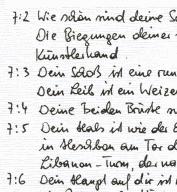 7:2 Wie schön sind deine S
Die Biegungen deiner
Künstlerhand.
7:3 Dein Schoß ist eine run
Dein Leib ist ein Weizen
7:4 Deine beiden Brüste s
7:5 Dein Hals ist wie der E
in Heschbon am Tor d
Libanon-Turm, der na
7:6 Dein Haupt auf dir ist